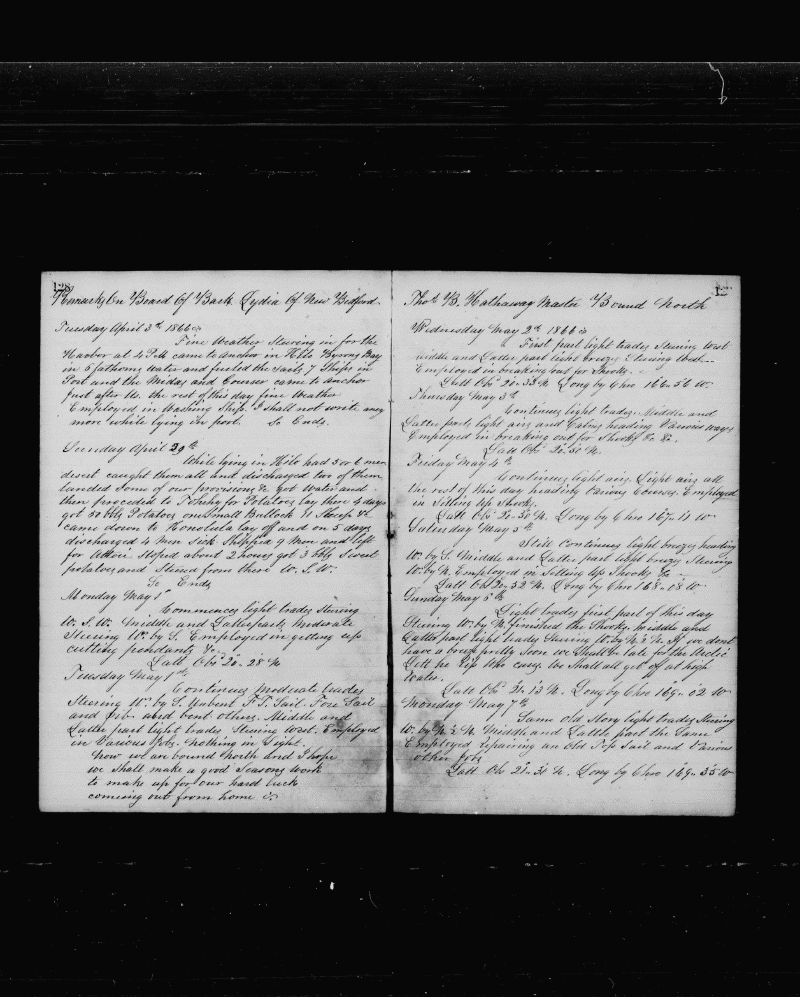 128
Remarks On Board Of Bark Lydia Of New Bedford.
Tuesday April 3d 1866
Fine Weather Steering in for the
Harbor at 4 P.M. came to anchor in Hilo Byrons Bay
in 5 fathoms water and furled the Sails, 7 Ships in
Port and the Midas and Courser came to anchor
just after Us. the rest of this day fine Weather
Employed in Washing Ship. I shall not write any
more while lying in port. So Ends.
Sunday April 29th
While lying in Hilo had 5 or 6 men
desert caught them all and discharged two of them
landed some of our provisions &c got Water and
then proceeded to for Potatoes, lay there 4 days
got 80 bbls Potatoes one Small Bullock 11 Sheep &c
came down to Honolulu lay off and on 5 days
discharged 4 Men Sick Shipped 9 Men and left
for Attoi Stoped about 2 hours got 3 bbls Sweet
potatoes and Steered from there W. S. W.
So Ends
Monday May 1st
Commences light trades Steering
W. S. W. Middle and Latter part, Moderate
Steering W. by S. Employed in getting up
cutting pendants &c.
Latt Obs 20-28 N
Tuesday May 1st
Continues Moderate trades
Steering W. by S. Unbent F.T. Sail. Fore Sail
and Jib and bent others. Middle and
Latter part light trades Steering West. Employed
in Various Jobs. Nothing in Sight.
Now we are bound North and I hope
we shall make a good Seasons Work
to make up for our hard luck
comeing out from home
Thos. B. Hathaway Master Bound North
Wednesday May 2d 1866
First part light trades Steering West
middle and Latter part light breezes Steering West
Employed in breaking out for Shooks.
Latt Obs 20-33 N Long by Chro 166-56 W.
Thursday May 3d
Continues light trades. Middle and
Latter part, light airs and Calms heading Various ways
Employed in breaking out for Shooks &c &c.
Latt Obs 20-50 N.
Friday May 4th
Continues light airs. Light airs all
the rest of this day heading Various Courses, Employed
in Setting Up Shooks.
Latt Obs 20-50 N. Long by Chro 167-11 W
Saturday May 5th
Still Continues light breezes heading
W. by S. Middle and Latter part light breezes Steering
W. by N. Employed in Setting Up Shooks &c
Latt Obs 20-52 N. Long by Chro 168-08 W
Sunday May 6th
Light trades first part of this day
Steering W. by N. finished the Shooks. middle and
Latter part light trades Steering W. by N. ½ N. If we dont
have a breeze pretty Soon we Shall be late for the Arctic
Lett he rip Who cares We Shall all get off at high
Water.
Latt Obs 21-13 N. Long by Chro 169-02 W
Monday May 7th
Same old Story light trades Steering
W. by N. ½ N. Middle and Latter part the Same
Employed repairing an old Top Sail and Various
other Jobs
Latt Obs 21-30 N. Long by Chro 169-55 W